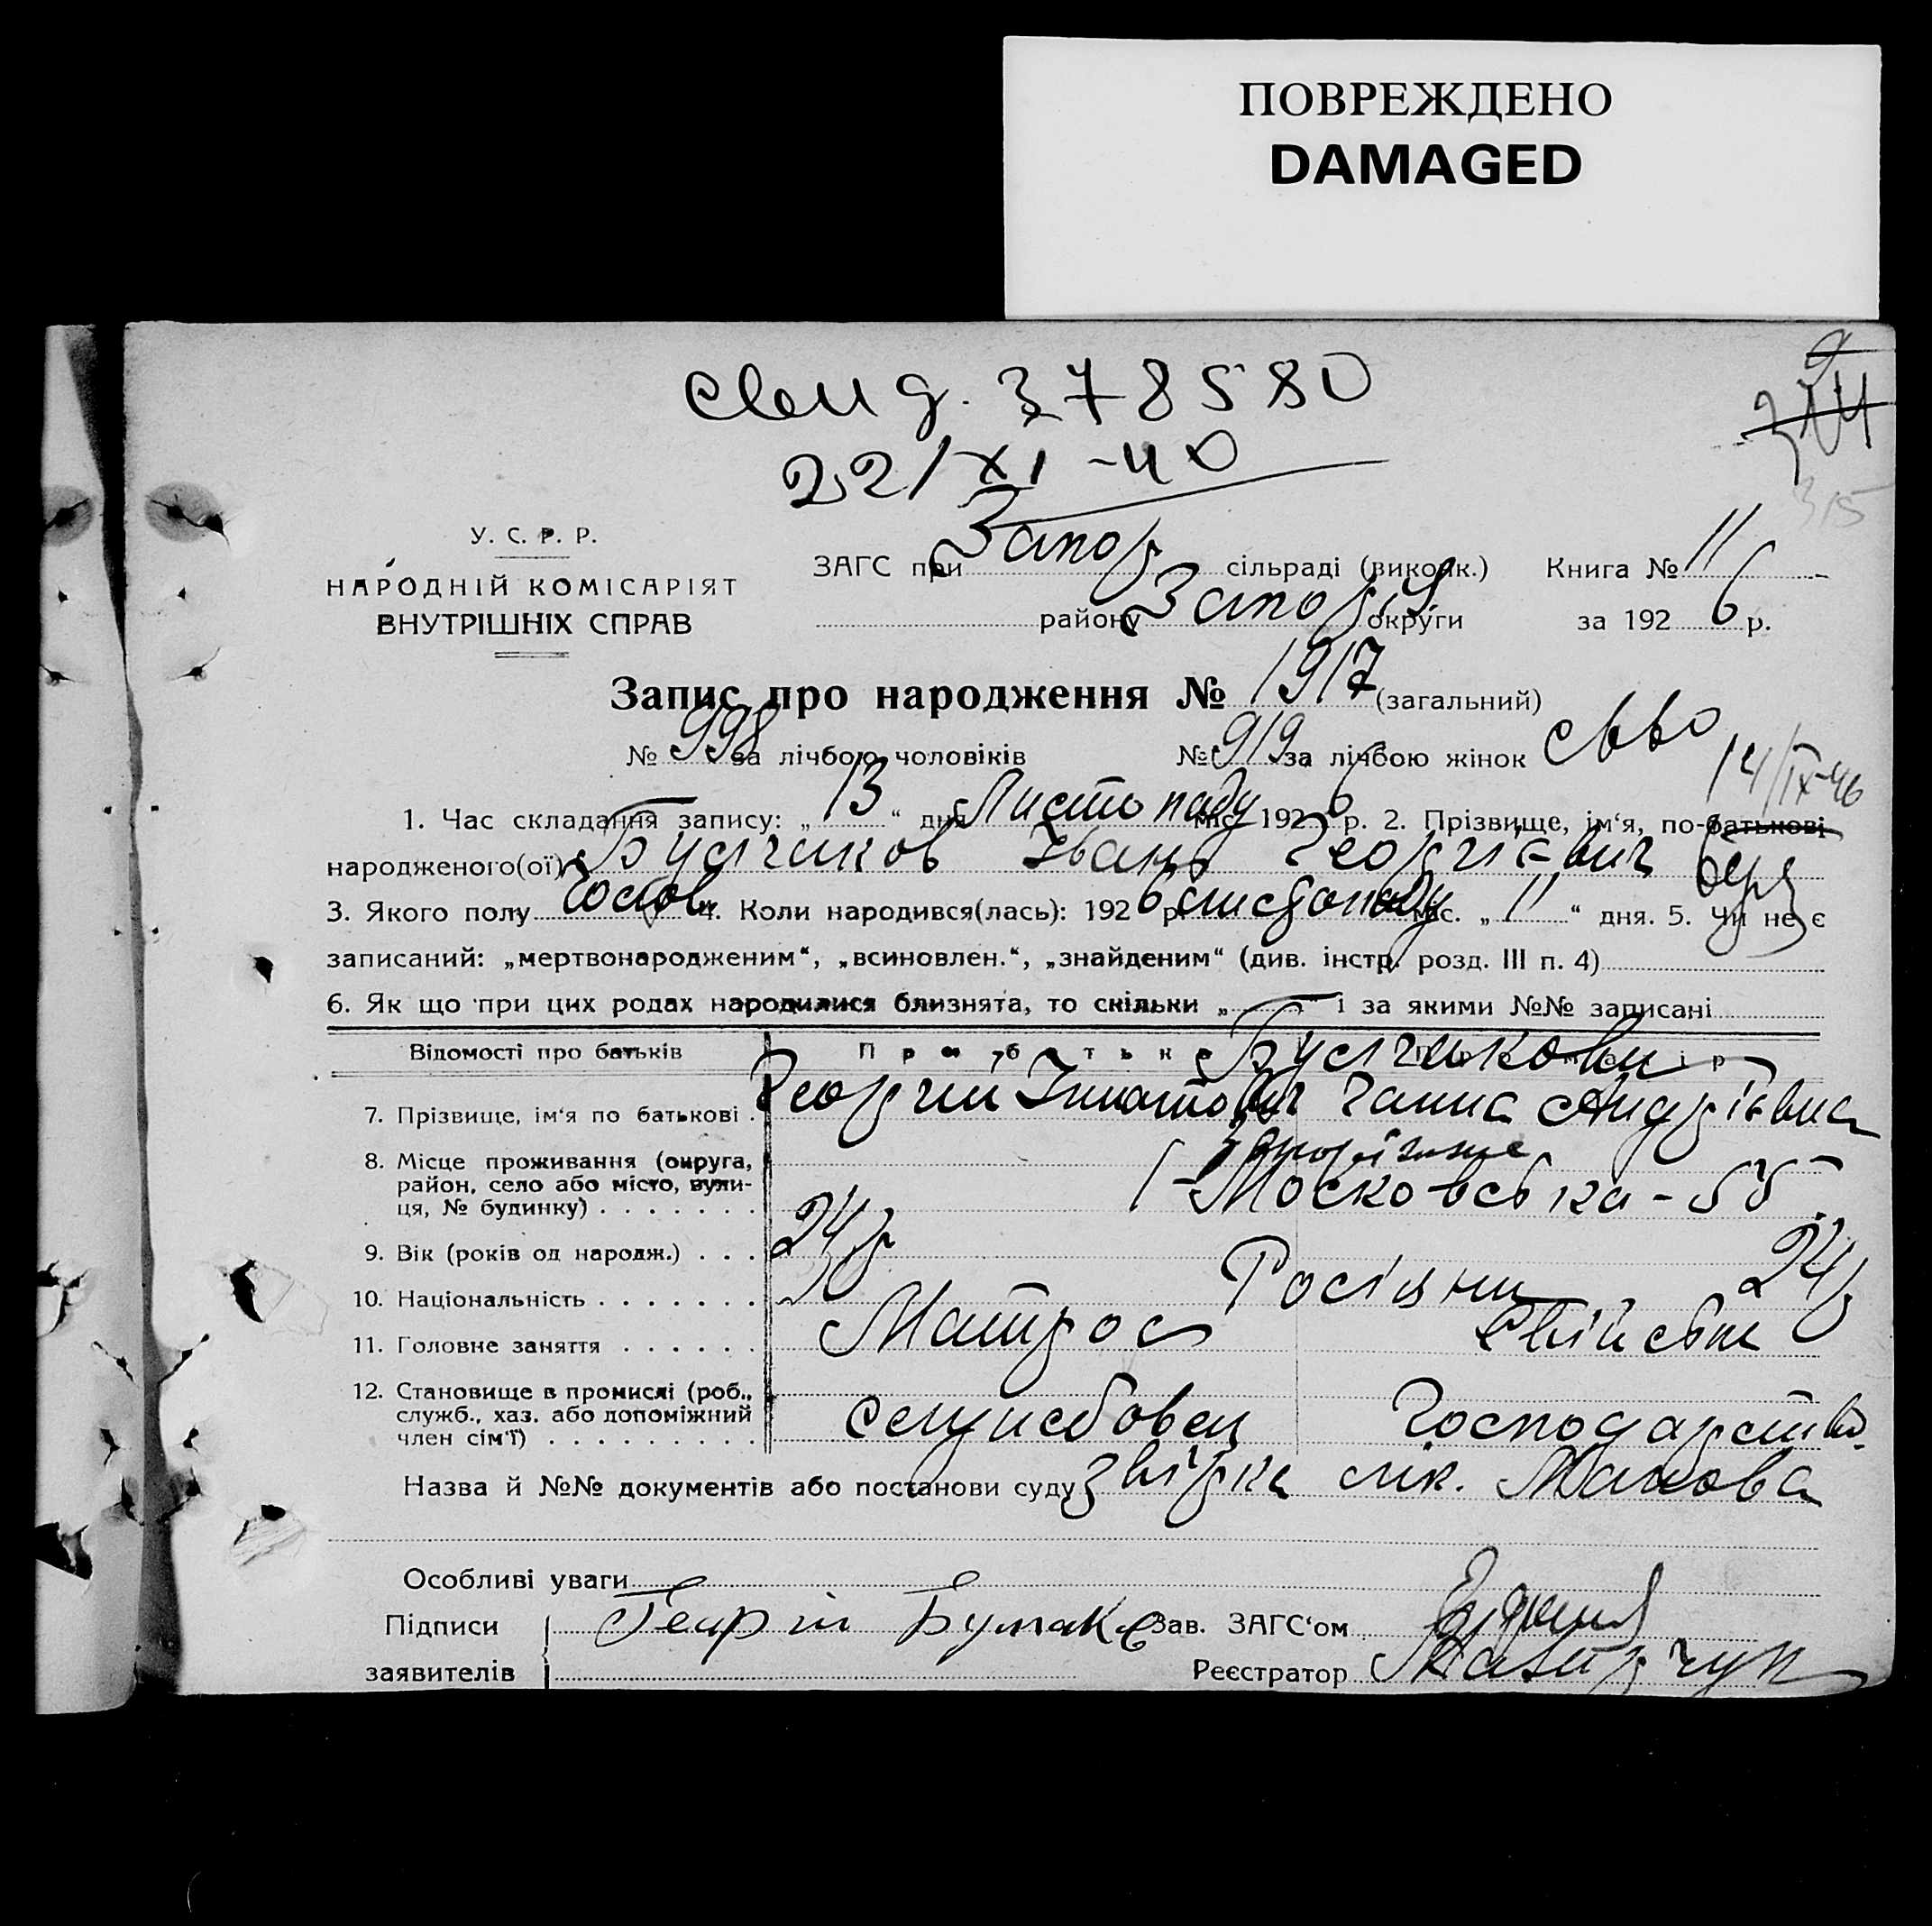 ПОВРЕЖДЕНО
DAMAGED
свид. 378580
22/XI-40
315
У. С. Р. Р.
НАРОДНІЙ КОМІСАРІЯТ
ВНУТРІШНІХ СПРАВ
ЗАГС при Запор сільраді (виконк.) Книга № 11
району Запоріз округи за 1926 р.
Запис про народження № 1917 (загальний)
№ 998 за лічбою чоловіків № 919 за лічбою жінок
14/IX-46
1. Час складання запису: „13“ дня Листопаду міс. 1926 р. 2. Прізвище, ім‘я, по-батькові
народженого(ої) Іван Георгієвич
3. Якого полу 4. Коли народився(лась): 1926 р. листопаду міс. „11“ дня. 5. Чи не є
записаний: „мертвонародженим“, „всиновлен.“, „знайденим“ (див. інстр. розд. III п. 4)
6. Як що при цих родах народилися близнята, то скільки „ “ і за якими №№ записані
Відомості про батьків Про батька Про матір
7. Прізвище, ім‘я по батькові . Георгий Ігнатович Ганна Андріївна
8. Місце проживання (округа, Запоріжжє
район, село або місто, вули- Московська - 55
ця, № будинку) . . . . . . .
9. Вік (років од народж.) . . . 24 р 24 р
10. Національність . . . . . . . Росіяни
11. Головне заняття . . . . . . Матрос
12. Становище в промислі (роб.,
служб., хаз. або допоміжний службовец Господарство
член сім‘ї) . . . . . . . . . .
Назва й №№ документів або постанови суду звірка лік.
Особливі уваги
Підписи Зав. ЗАГС‘ом
заявителів Реєстратор